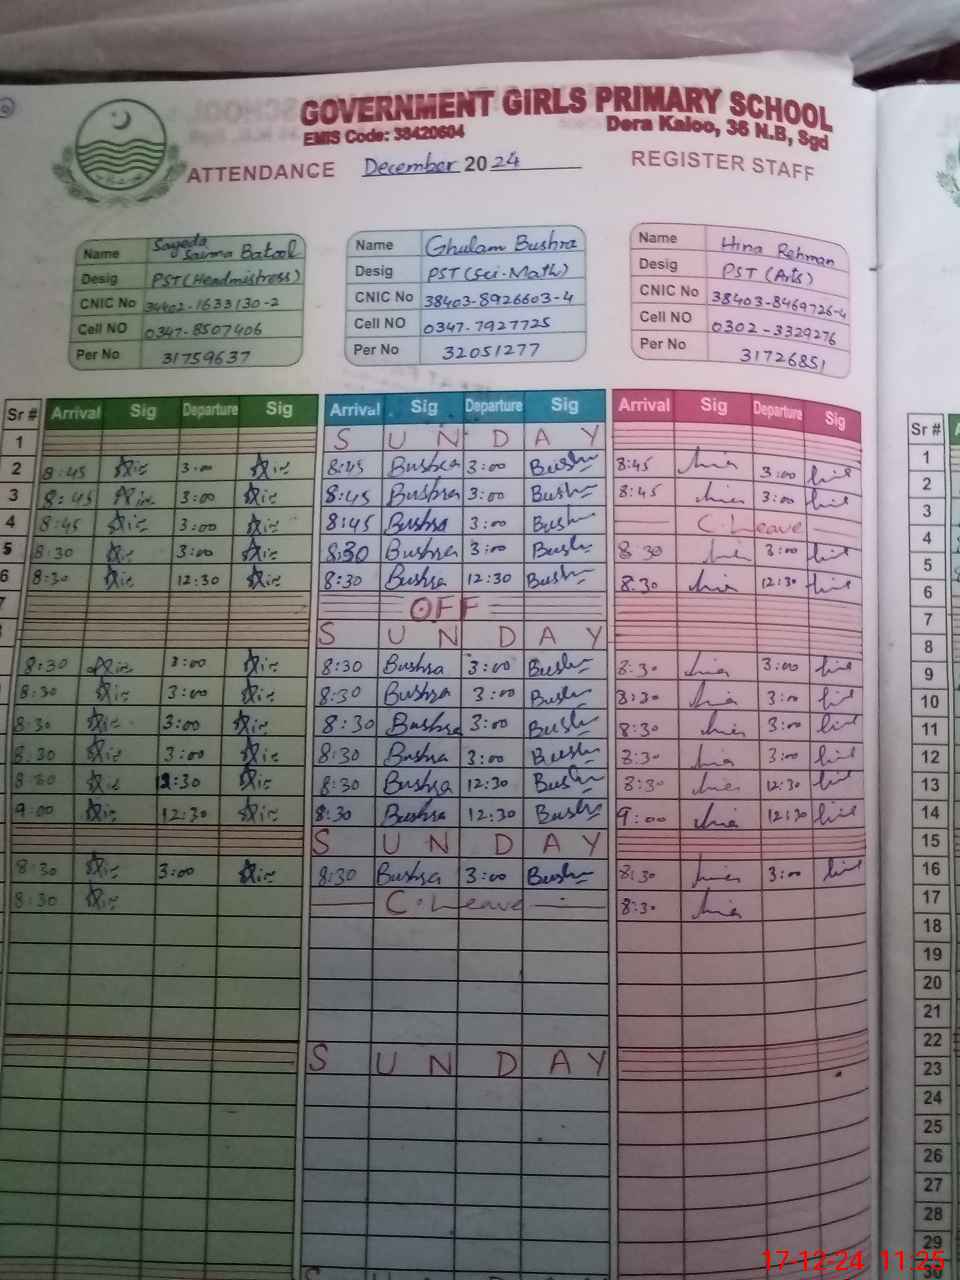 GOVERNMENT GIRLS PRIMARY SCHOOL
EMIS Code: 38420604 Dera Kaloo, 36 N.B, Sgd
ATTENDANCE December 2024 REGISTER STAFF
Name Sayeda Saima Batool
Desig PST (Headmistress)
CNIC No 34402-1633130-2
Cell NO 0347-8507406
Per No 31759637
Name Ghulam Bushra
Desig PST (Sci-Math)
CNIC No 38403-8926603-4
Cell NO 0347-7927725
Per No 32051277
Name Hina Rehman
Desig PST (Arts)
CNIC No 38403-8469726-4
Cell NO 0302-3329276
Per No 31726851
Sr # Arrival Sig Departure Sig Arrival Sig Departure Sig Arrival Sig Departure Sig
1 SUNDAY
2 8:45 3:00 8:45 Bushra 3:00 Bushra 8:45 3:00
3 8:45 3:00 8:45 Bushra 3:00 Bushra 8:45 3:00
4 8:45 3:00 8:45 Bushra 3:00 Bushra C.Leave
5 8:30 3:00 8:30 Bushra 3:00 Bushra 8:30 3:00
6 8:30 12:30 8:30 Bushra 12:30 Bushra 8:30 12:30
7 OFF
SUNDAY
8:30 3:00 8:30 Bushra 3:00 Bushra 8:30 3:00
8:30 3:00 8:30 Bushra 3:00 Bushra 8:30 3:00
8:30 3:00 8:30 Bushra 3:00 Bushra 8:30 3:00
8:30 3:00 8:30 Bushra 3:00 Bushra 8:30 3:00
8:30 12:30 8:30 Bushra 12:30 Bushra 8:30 12:30
9:00 12:30 8:30 Bushra 12:30 Bushra 9:00 12:30
SUNDAY
8:30 3:00 8:30 Bushra 3:00 Bushra 8:30 3:00
8:30 C.Leave 8:30
SUNDAY
Sr #
1
2
3
4
5
6
7
8
9
10
11
12
13
14
15
16
17
18
19
20
21
22
23
24
25
26
27
28
29
30
17-12-24 11:25